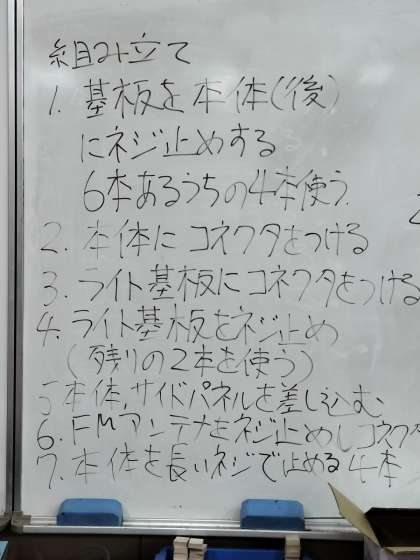 組み立て
1. 基板を本体(後)
にネジ止めする
6本あるうちの4本使う.
2. 本体にコネクタをつける
3. ライト基板にコネクタをつける
4. ライト基板をネジ止め
(残りの2本を使う)
5 本体,サイドパネルを差し込む
6. FMアンテナをネジ止めしコネクタ
7. 本体を長いネジで止める4本